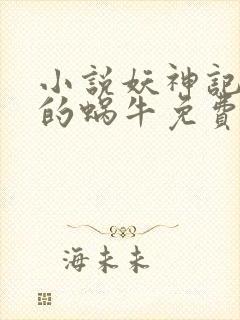 小説妖神記
的蝸牛免費
海未未